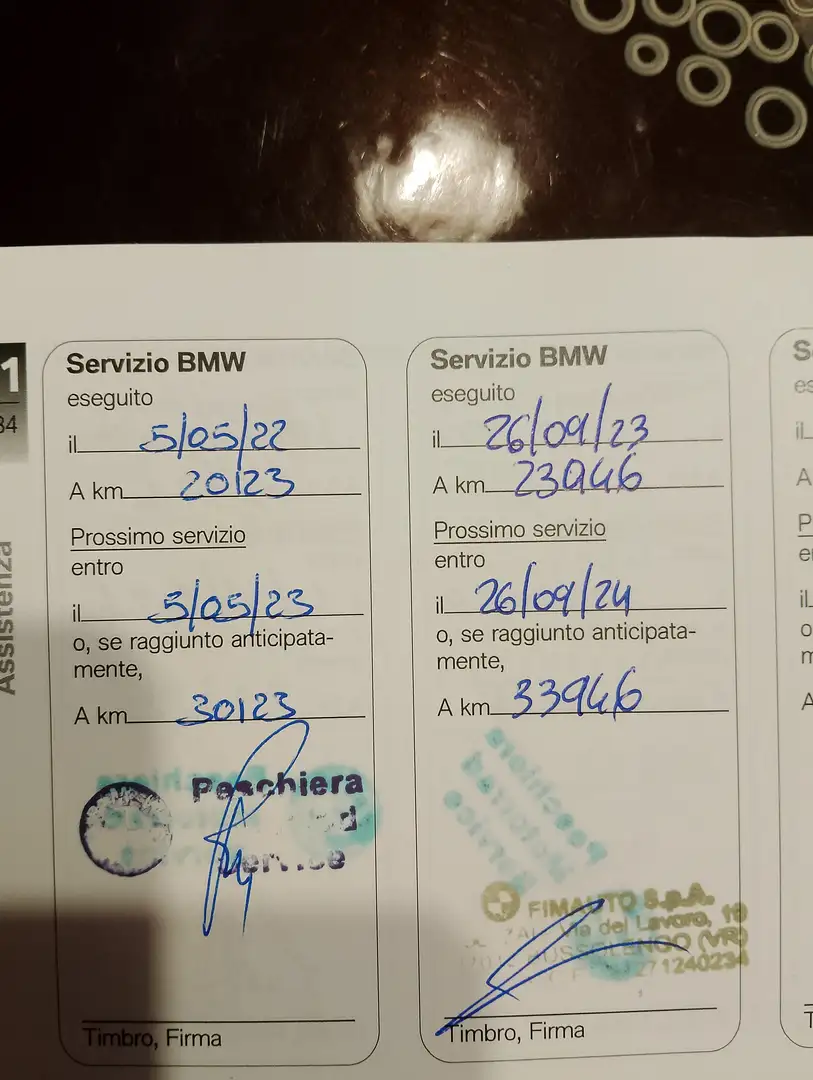 1
34
Assistenza
Servizio BMW
eseguito
il 5/05/22
A km 20123
Prossimo servizio
entro
il 5/05/23
o, se raggiunto anticipata-
mente,
A km 30123
Peschiera
Service
Timbro, Firma
Servizio BMW
eseguito
il 26/09/23
A km 23946
Prossimo servizio
entro
il 26/09/24
o, se raggiunto anticipata-
mente,
A km 33946
Peschiera
Motorrad
Service
FIMAUTO S.p.A.
Via del Lavoro, 19
BUSSOLENGO (VR)
1240234
Timbro, Firma